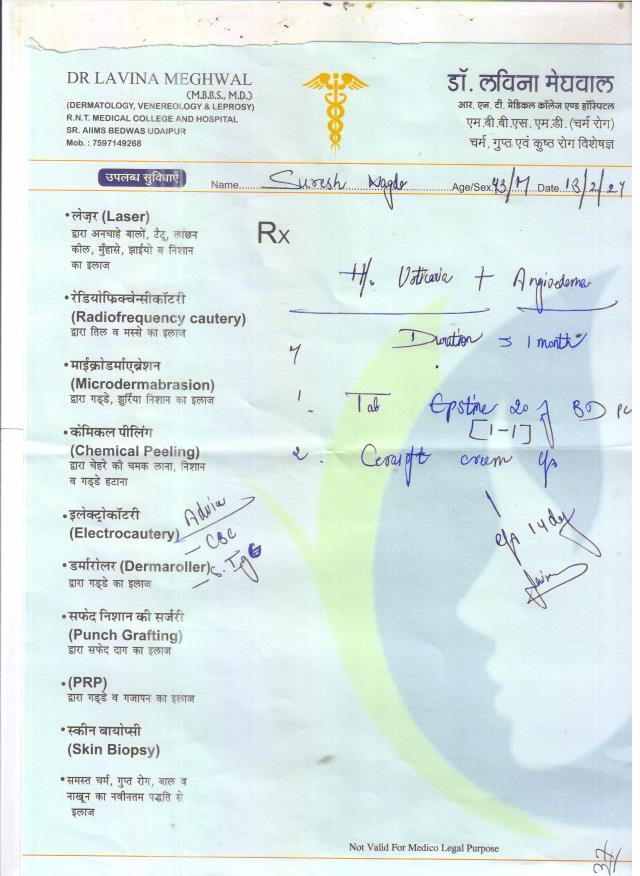 DR LAVINA MEGHWAL
(M.B.B.S., M.D.)
(DERMATOLOGY, VENEREOLOGY & LEPROSY)
R.N.T. MEDICAL COLLEGE AND HOSPITAL
SR. AIIMS BEDWAS UDAIPUR
Mob. : 7597149268
डॉ. लविना मेघवाल
आर. एन. टी. मेडिकल कॉलेज एण्ड हॉस्पिटल
एम.बी.बी.एस. एम.डी. (चर्म रोग)
चर्म, गुप्त एवं कुष्ठ रोग विशेषज्ञ
उपलब्ध सुविधाएँ
Name Suresh Age/Sex 43/M Date 13/2/24
• लेज़र (Laser)
द्वारा अनचाहे बालों, टैटु, लांछन
कील, मुँहासे, झाईयो व निशान
का इलाज
• रेडियोफिक्वेन्सीकॉटरी
(Radiofrequency cautery)
द्वारा तिल व मस्से का इलाज
• माईक्रोडर्माएब्रेशन
(Microdermabrasion)
द्वारा गड्डे, झुर्रिया निशान का इलाज
• केमिकल पीलिंग
(Chemical Peeling)
द्वारा चेहरे की चमक लाना, निशान
व गड्डे हटाना
• इलेक्ट्रोकॉटरी
(Electrocautery)
• डर्मारोलर (Dermaroller)
द्वारा गड्डे का इलाज
• सफेद निशान की सर्जरी
(Punch Grafting)
द्वारा सफेद दाग का इलाज
• (PRP)
द्वारा गड्डे व गंजापन का इलाज
• स्कीन बायोप्सी
(Skin Biopsy)
• समस्त चर्म, गुप्त रोग, बाल व
नाखून का नवीनतम पद्धति से
इलाज
Rx
+ Angioedema
Duration 1 month
1. Tab 20 BD PC
[1-1]
2. cream
14 day
Advice
- CBC
- S. IgE
Not Valid For Medico Legal Purpose